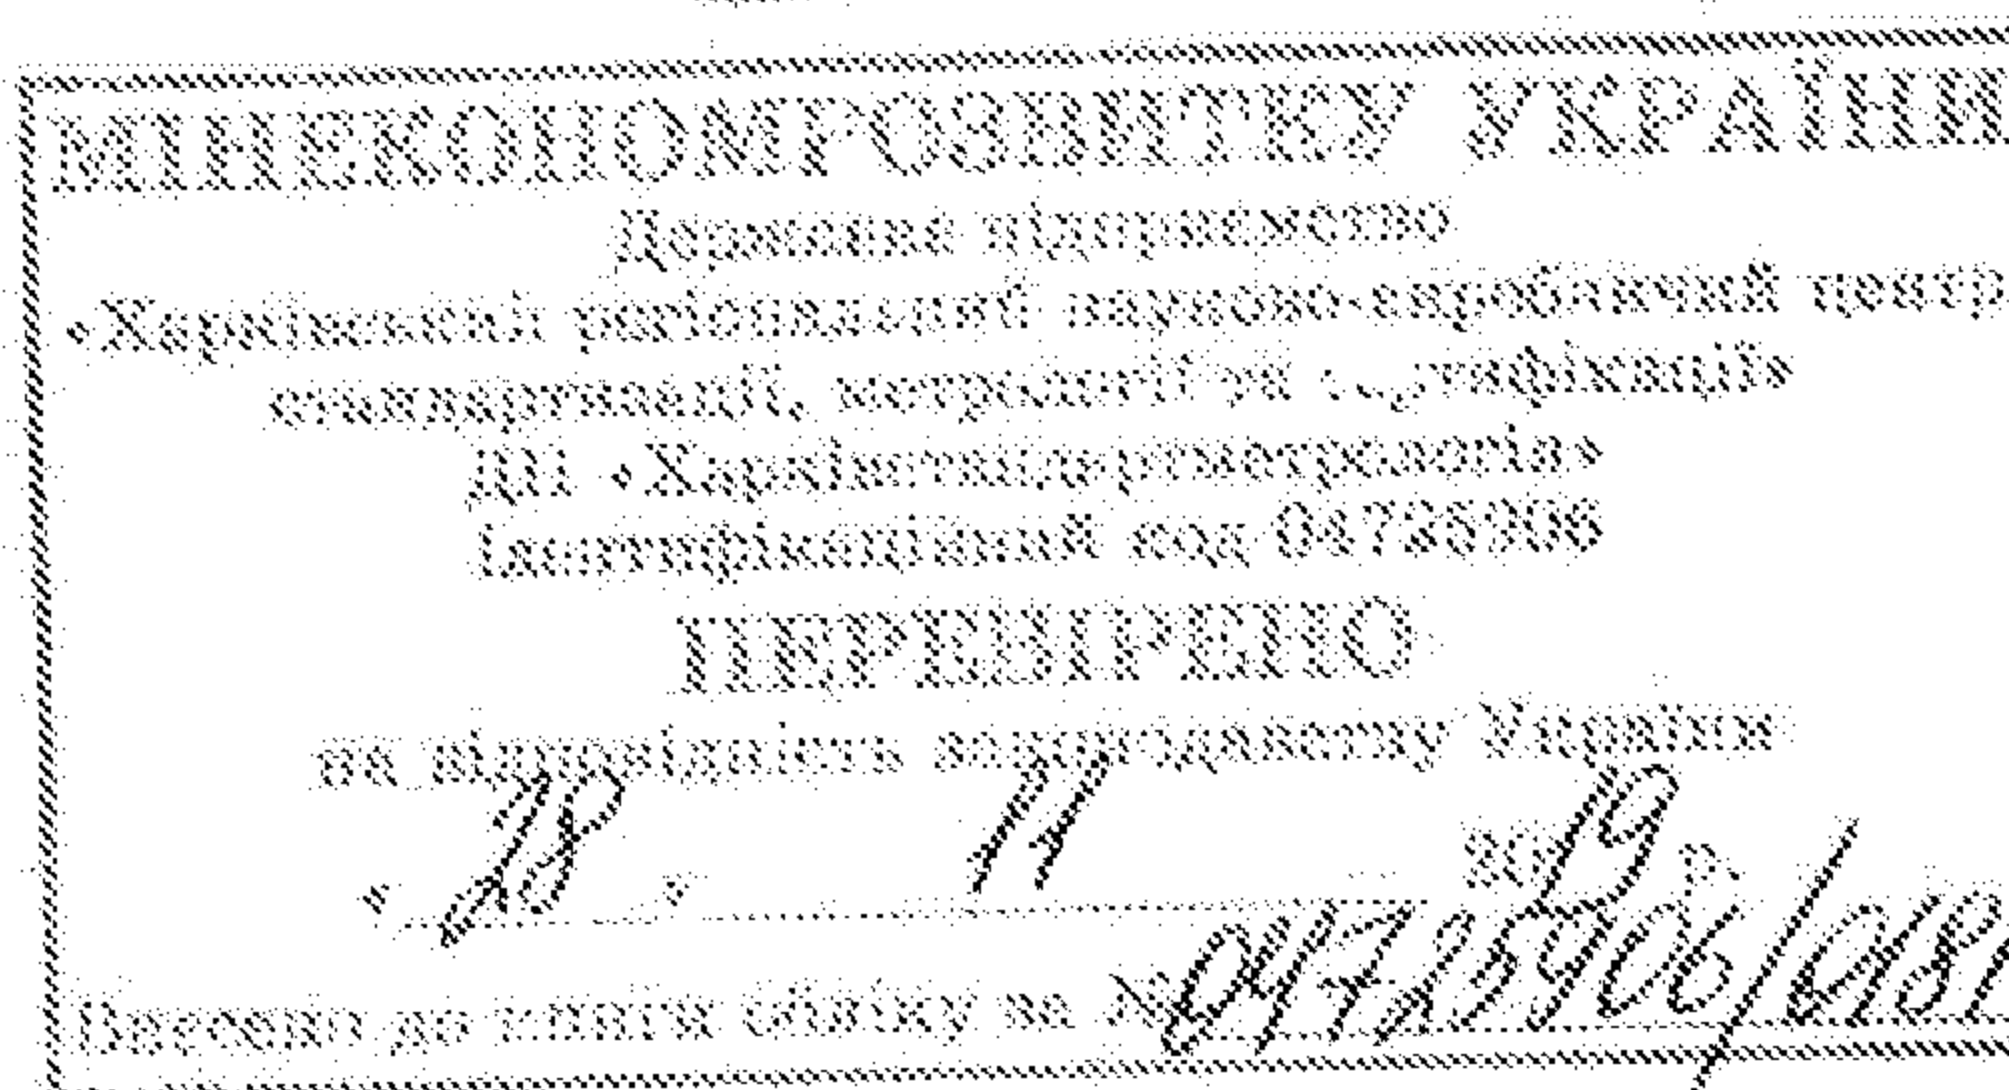 МІНЕКОНОМРОЗВИТКУ УКРАЇНИ
Державне підприємство
«Харківський регіональний науково-виробничий центр
стандартизації, метрології та сертифікації»
ДП «Харківстандартметрологія»
ідентифікаційний код 04725906
ПЕРЕВІРЕНО
на відповідність законодавству України
« 28 » 11 2019 р.
Внесено до книги обліку за № 04725906/0181